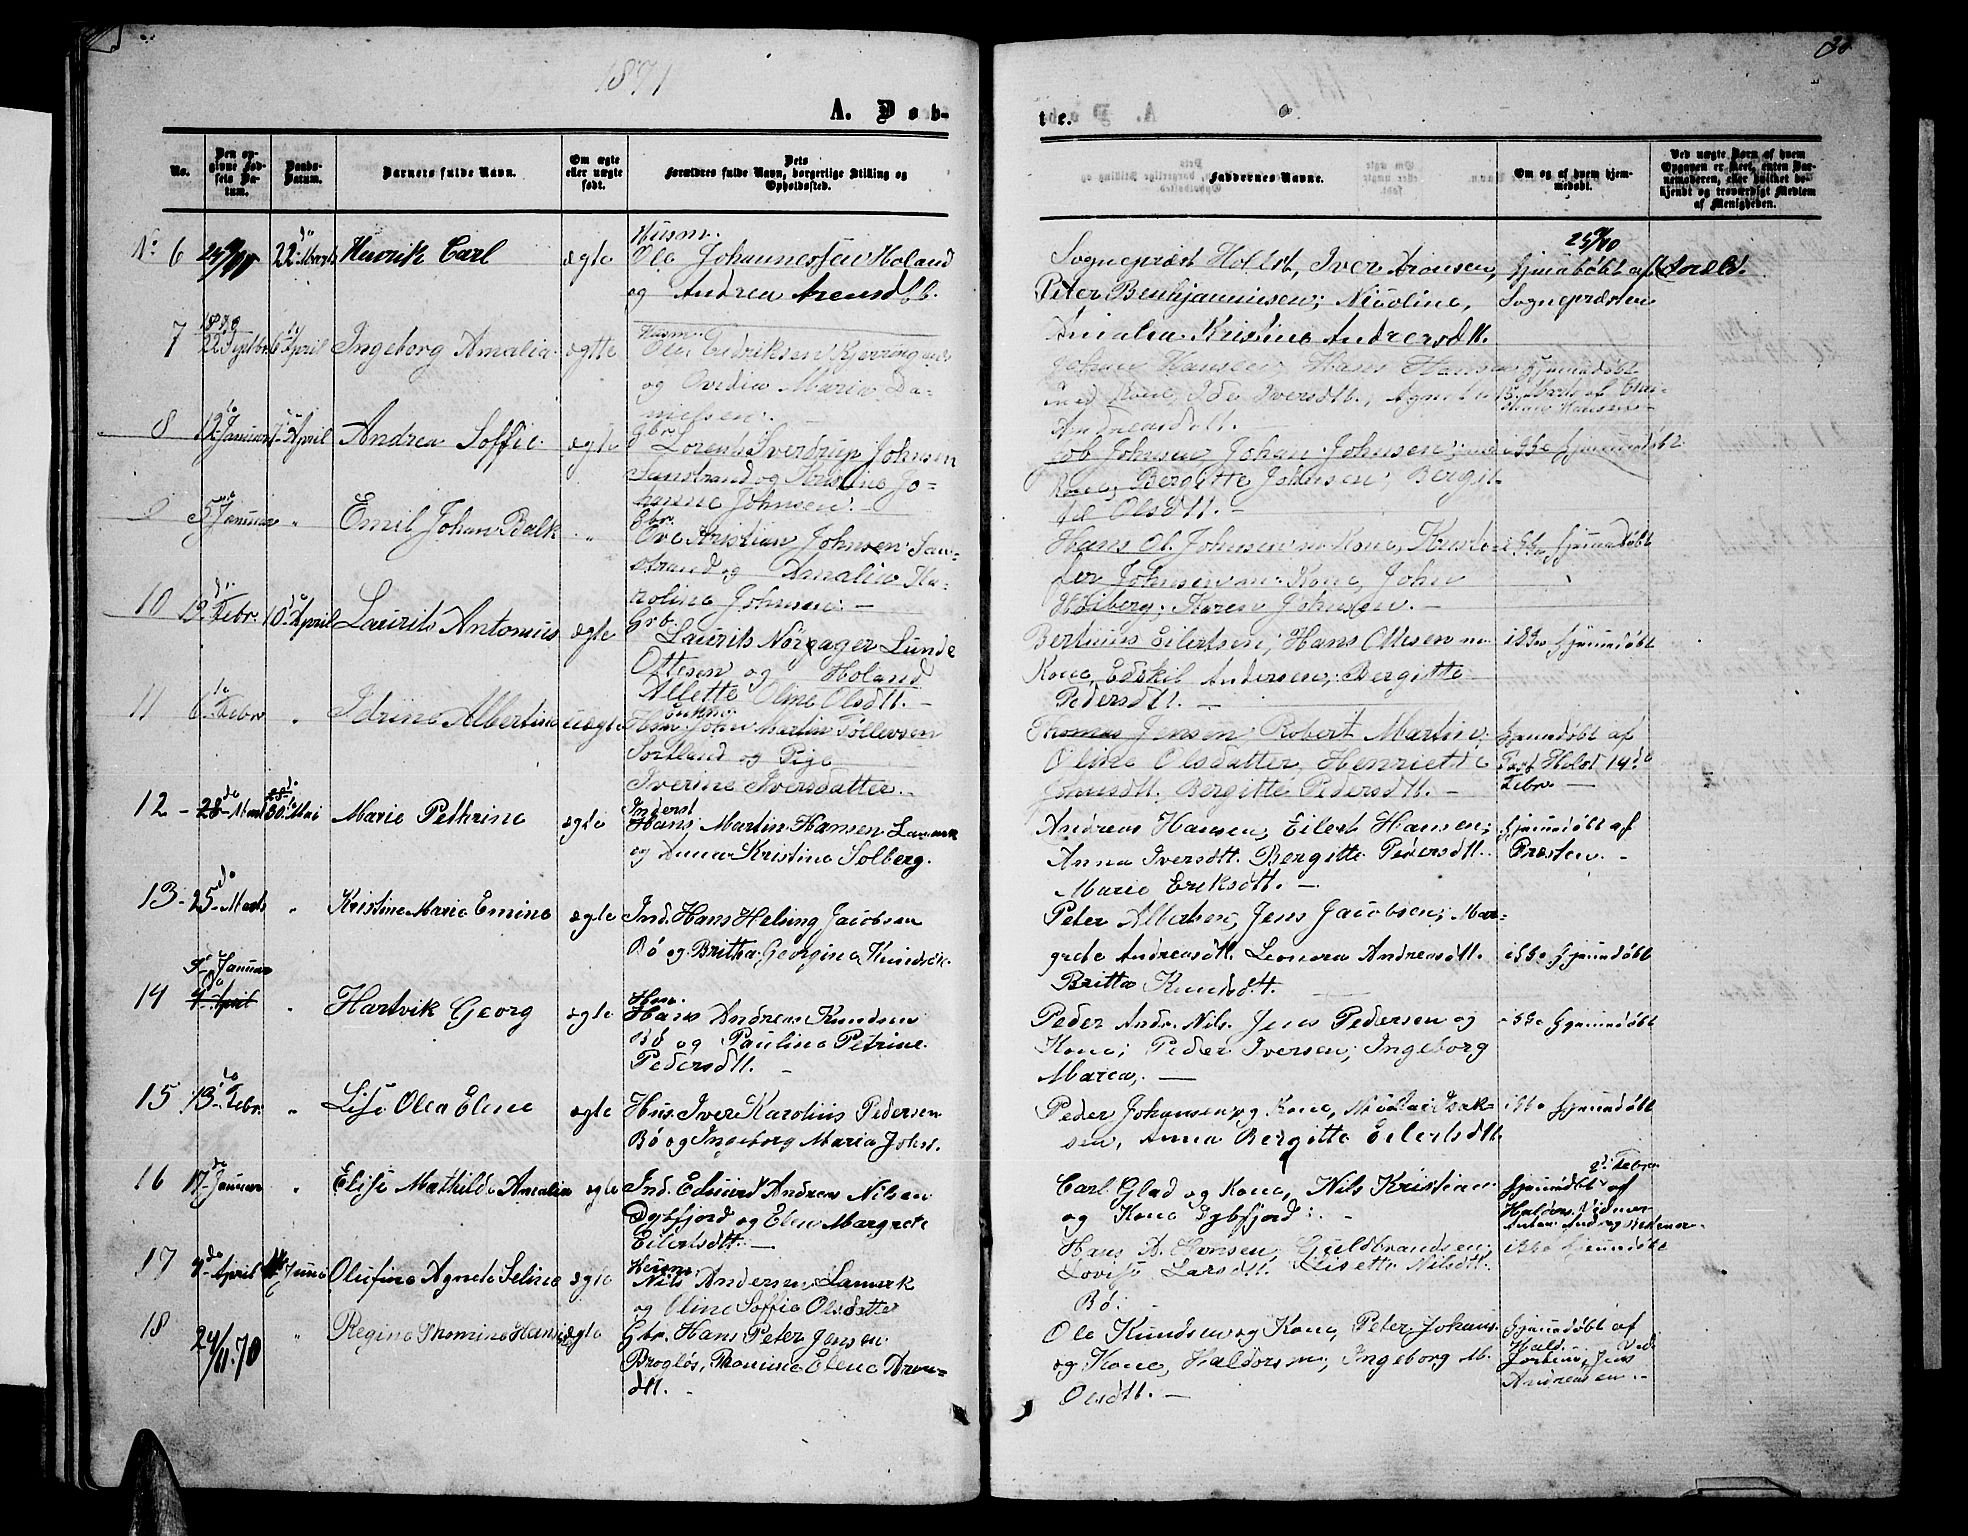 1871
30
A. Døb-
te.
No.
Den op-
givne Fød-
sels Da-
tum.
Daabs-
Datum.
Barnets fulde Navn.
Om ægte
eller uægte
født.
Dets
Forældres fulde Navn, borgerlige Stilling og
Opholdssted.
Faddernes Navne.
Om og af hvem hjem-
medøbt.
Ved uægte Børn af hvem
Opgaven er skeet, enten Bar-
nemoderen, eller hvilket be-
kjendt og troværdigt Medlem
af Menigheden.
No 6 22 Marts Henrik Carl ægte
Husm.
Ole Johannessen Holand
og Andrea Arensdtt.
Sogneprest Holst, Iver Aronsen,
Peter Benhjaminsen; Nicoline,
Amalia Kristine Andreasdtt.
hjemdøbt af
Sognepræsten
7 22 Septbr 6 April Ingeborg Amalia ægte
Husm.
Ole Fredriksen Kjerringnes
og Ovedia Maria Da-
nielsen.
Johan Hansen, Hans Hansen
med Kone, Ida Iversdtt., Agnete
Andreasdtt.
hjemdøbt
8 12 Januar 7 April Andrea Soffie ægte
Gbr.
Lorents Sverdrup Johnsen
Sanstrand og Kristine Jo-
hanne Johnsen.
Job Johnsen, Johan Johnsen,
Kone, Bergitte Johnsen, Bergit-
te Olsdtt. -
ikke hjemmdøbt
9 5 Januar " Emil Johan Balk "
Gbr.
Ove Kristian Johnsen San-
strand og Amalia Ka-
roline Johnsen. -
Hans Ol. Johnsen m. Kone, Kristo-
fer Johnsen m. Kone, John
Høiberg, Karen Johnsen. -
ikke hjemmdøbt
10 19 Febr. 10 April Laurits Antonius ægte
Gbr.
Laurits Nørager Lunde
Ottesen og Holand
Allette Oline Olsdtt. -
Bertinus Eilertsen, Hans Ottesen m.
Kone, Edskil Andersen, Bergitte
Pedersdtt. -
ikke hjemmdøbt
11 6 Febr " Idrine Albertine uægte
Enkm.
John Martin Tollevsen
Sortland og Pige
Iverine Iversdatter. -
Thomas Jensen, Robert Martin,
Oline Olsdatter, Henriette
Johnsdtt., Bergitte Pedersdtt. -
hjemmdøbt af
Past. Holst 14de
Febr -
12 28 Mars 30 Mai Marie Pethrine ægte
Inderst
Hans Martin Hansen Lamark
og Anna Kristine Solberg.
Andreas Hansen, Eilert Hansen;
Anna Iversdtt. Bergitte Pedersdtt.
Marie Eriksdtt. -
hjemmdøbt af
Præsten. -
13 - 25 Marts " Kristine Marie Emine ægte
Ind. Hans Helsing Jacobsen
Bø og Britha Georgine Knudsdtt.
Peter Albertsen, Jens Jacobsen; Mar-
grete Andreasdtt. Leonora Andreasdtt.
Britta Knudsdtt. -
ikke hjemmdøbt
9 Januar
14 4 April " Hartvik Georg ægte
Husm.
Hans Andreas Knudsen
Bø og Pauline Petrine
Pedersdtt. -
Peder Andr. Nils. Jens Pedersen og
Kone; Peder Iversen; Ingeborg
Marea. -
ikke hjemmdøbt
15 13 Febr. " Lise Olea Elene ægte
Hus. Iver Karolius Pedersen
Bø og Ingeborg Maria Johst.
Peder Johansen og Kone, Nicolai Isak-
sen, Anna Bergitte Eilertsdtt.
ikke hjemmdøbt
16 17 Januar " Elise Mathilde Amalia ægte
Ind. Eduard Andreas Nilsen
Dybfjord og Elen Margrete
Eilertsdtt. -
Carl Glad og Kone, Nils Kristian
og Kone Dybfjord. -
9de Febr.
hjemmdøbt af
17 4 April Juni Olufine Agnete Seline ægte
Husm.
Nils Andersen, Lamark
og Oline Soffie Olsdatter
Hans A. Hansen, Guldbrandsen,
Lovise Larsdtt. Elisette Nilsdtt.
Bø.
ikke hjemmdøbt
18 24/11.70 " Regine Thomine ægte
Gbr. Hans Peter Jensen
Brogløs, Thomine Elene Aron-
dtt. -
Ole Knudsen og Kone, Peter Johans.
og Kone, Haldorsen, Ingeborg M.
Olsdtt. -
hjemmdøbt af
Jens
Andreassen. -